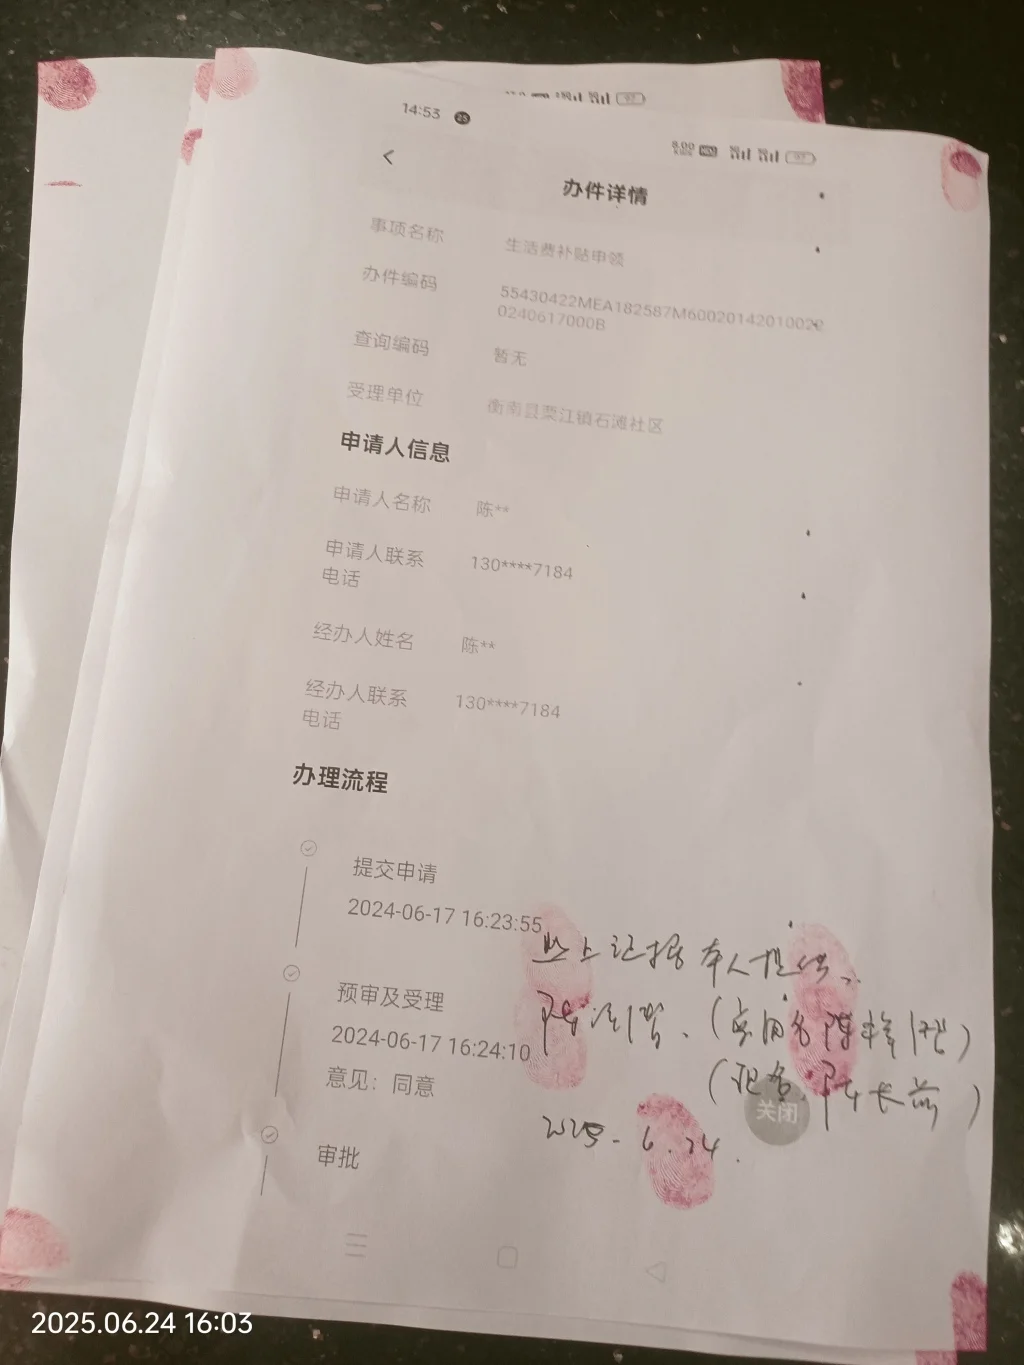 14:53
办件详情
事项名称 生活费补贴申领
办件编码 55430422MEA182587M6002014201002020240617000B
查询编码 暂无
受理单位 衡南县栗江镇石滩社区
申请人信息
申请人名称 陈**
申请人联系电话 130****7184
经办人姓名 陈**
经办人联系电话 130****7184
办理流程
提交申请
2024-06-17 16:23:55
预审及受理
2024-06-17 16:24:10
意见：同意
审批
以上证据本人提供
2025-6.24.
关闭
2025.06.24 16:03